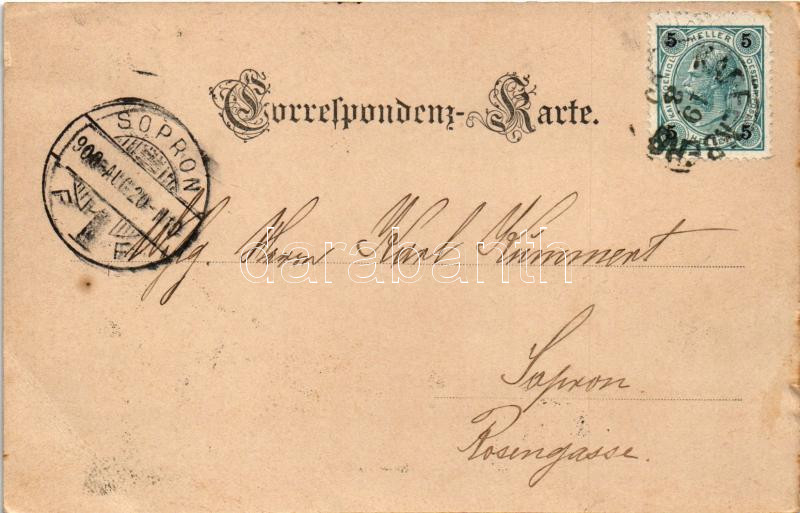 5 HELLER 5
5 5
Correspondenz-Karte.
SOPRON
900 AUG 20
F F
Herrn Karl Kumment
darabanth
Sopron.
Rosengasse.